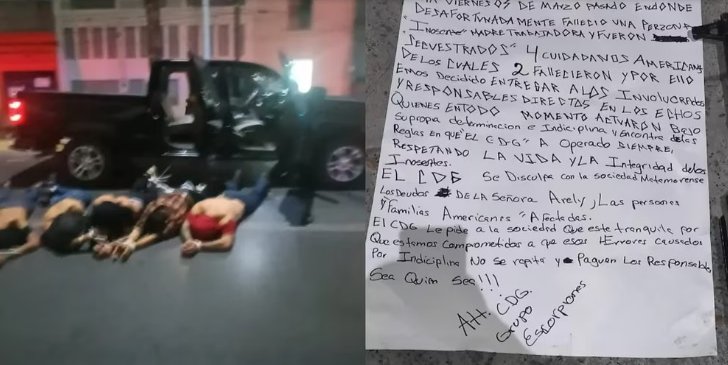 VIERNES 03 DE MARZO PASADO EN DONDE
DESAFORTUNADAMENTE FALLECIO UNA PERZONA
"Inosente" MADRE TRABAJADORA y FUERON
SECUESTRADOS" 4 CUIDADANOS AMERICANOS
DE LOS CUALES 2 FALLECIERON Y POR ELLO
EMOS DECIDIDO ENTREGAR A LOS INVOLUCRADOS
Y RESPONSABLES DIRECTOS EN LOS ECHOS
QUIENES EN TODO MOMENTO ACTUARON BAJO
Su propia determinacion e Indiciplina y Encontra de las
Reglas EN QUE "EL CDG" A OPERADO SIEMPRE,
RESPETANDO LA VIDA Y LA Integridad de los
Inosentes.
EL CDG Se Disculpa con la sociedad Matamorense
Los Deudos DE LA SEÑORA Arely, Las personas
y "Familias Americanes" Afectadas.
El CDG Le pide a la sociedad Que este tranquila por
Que estamos Comprometidos a que esos Herrores causados
Por Indiciplina No se repita y Paguen Los Responsables
Sea Quim Sea!!!
Att. CDG.
Grupo
Escorpiones